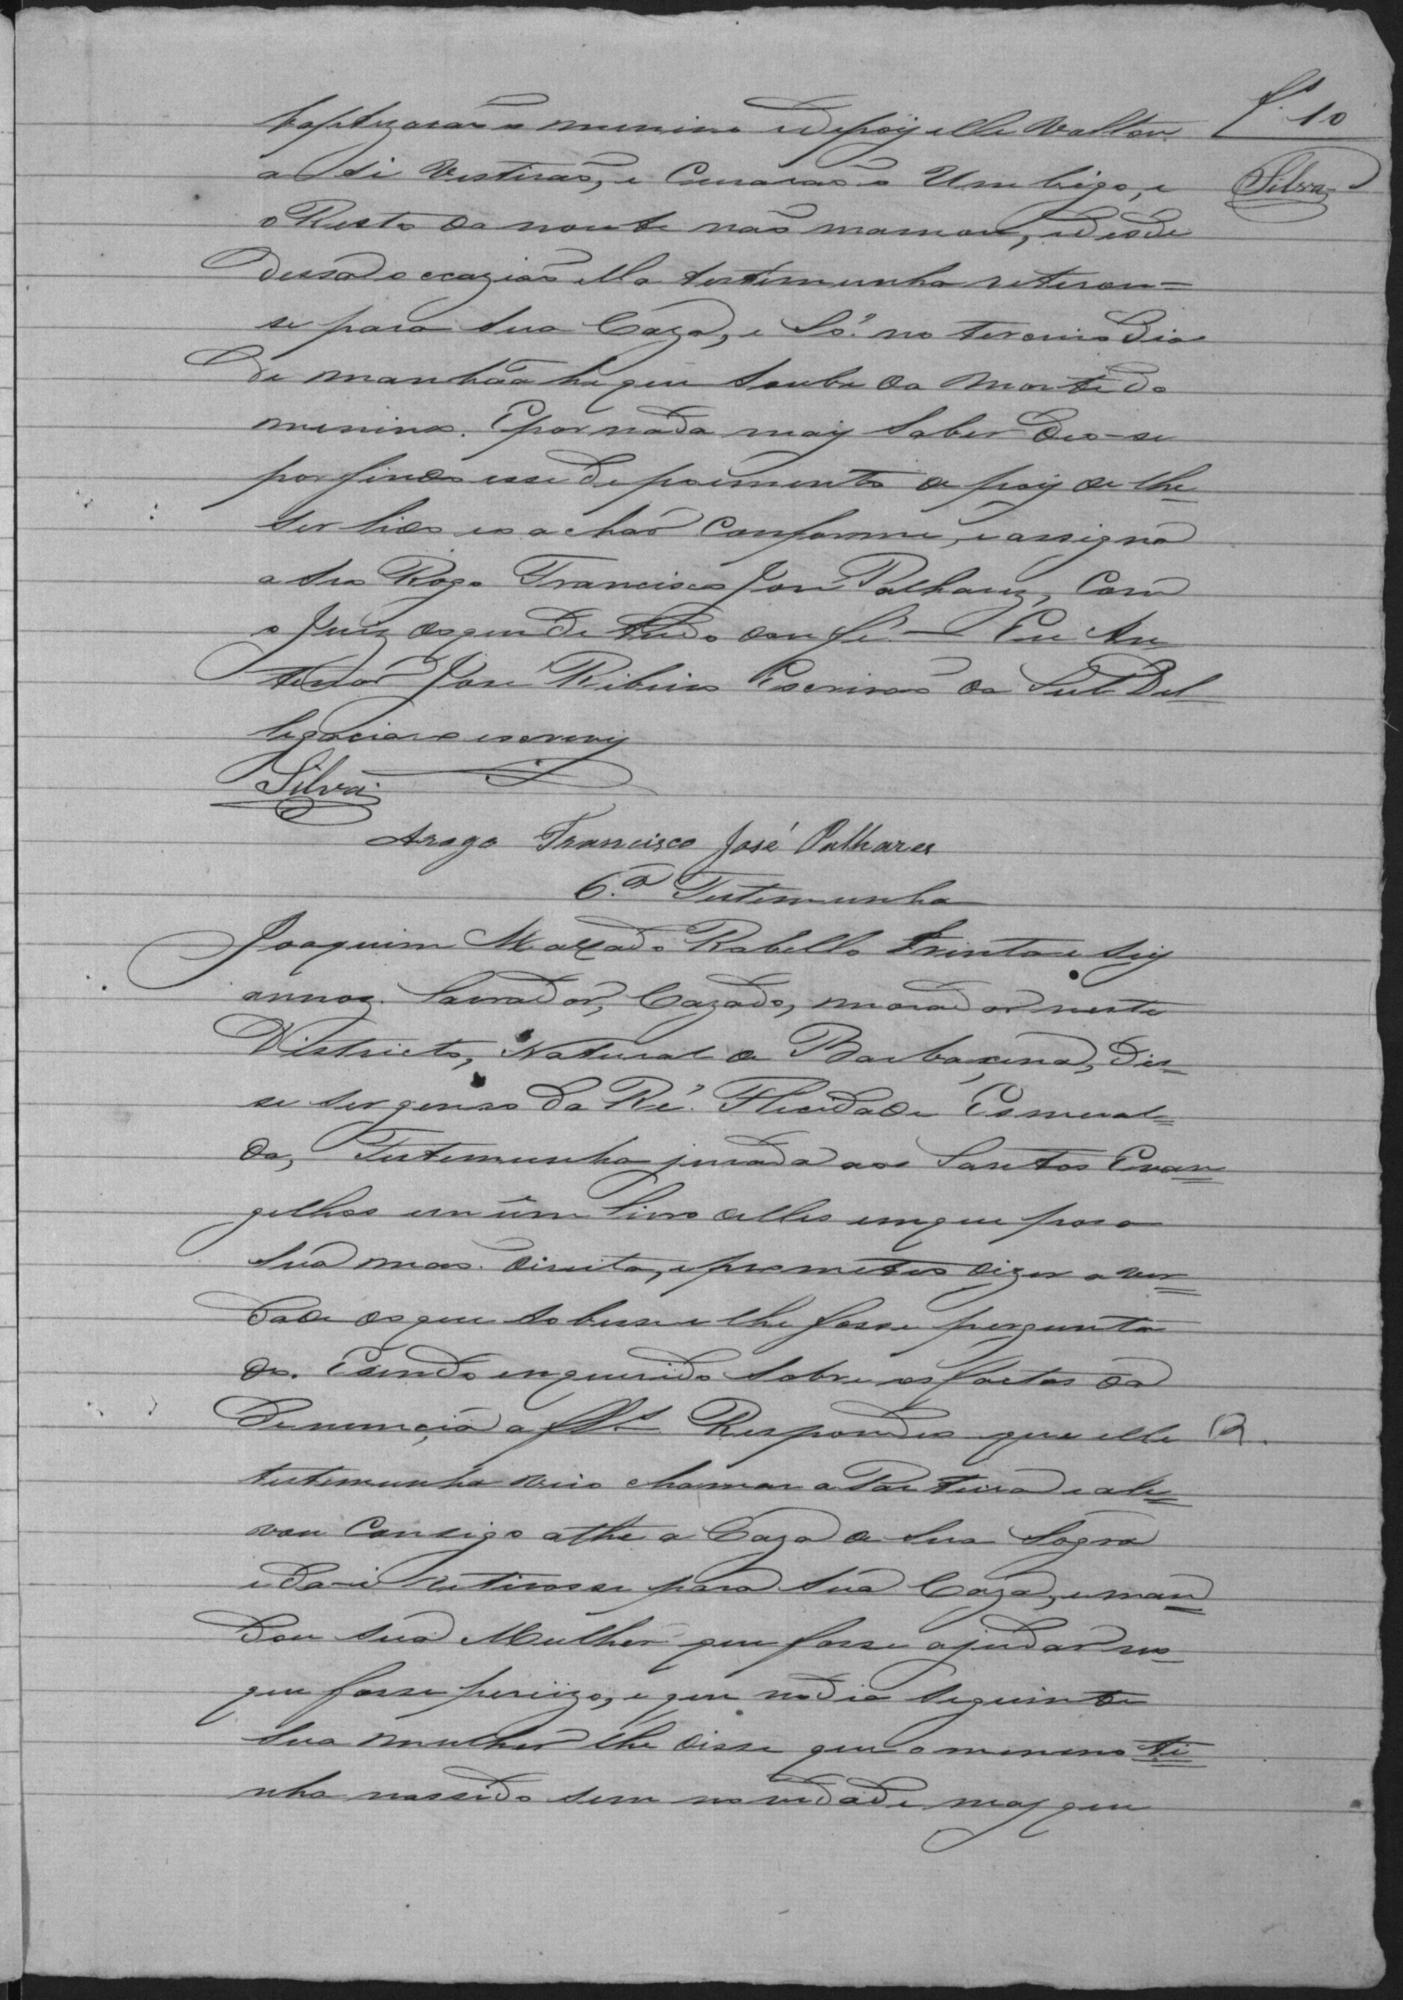 f. 10
Silva
baptizarão o menino e depois elle voltou
a si vestirão, e curarão o Umbigo, e
o Resto da noute não mamou, e desde
dessa occazião ella testemunha retirou=
se para sua Caza, e Só no terceiro dia
de manhãa he que soube da morte do
menino. E por nada mais saber deo-se
por findo esse depoimento depois de lhe
ser lido e o achar conforme, e assigna
a seu Rogo Francisco José Palhares, Com
o Juiz do que de tudo dou fé. Eu An
tenor José Ribeiro Escrivão da Sub Del
legacia o escrevy
Silva
Arogo Francisco José Palhares
6.ª Testemunha
Joaquim Machado Rabello trinta e seis
annos. Lavrador, Cazado, morador neste
Districto, Natural de Barbacena, dis-
se ser genro da Ré. Flicidade Esmeral=
da, Testemunha jurada aos Santos Evan=
gelhos em um Livro delles em que pos a
sua mão direita, e prometeo dizer a ver=
dade do que soubesse e lhe fosse pergunta
do. E sendo enquerido sobre os factos da
denuncia a f Respondeo que elle R.
testemunha veio chamar a Parteira e a le=
vou Consigo athe a Caza de sua Sogra
e da-i retirosse para sua Caza, e man=
dou sua Mulher que fosse ajudar no
que fosse perciizo, e que no dia seguinte
sua mulher lhe disse que o menino ti=
nha nassido sem novidade mas que